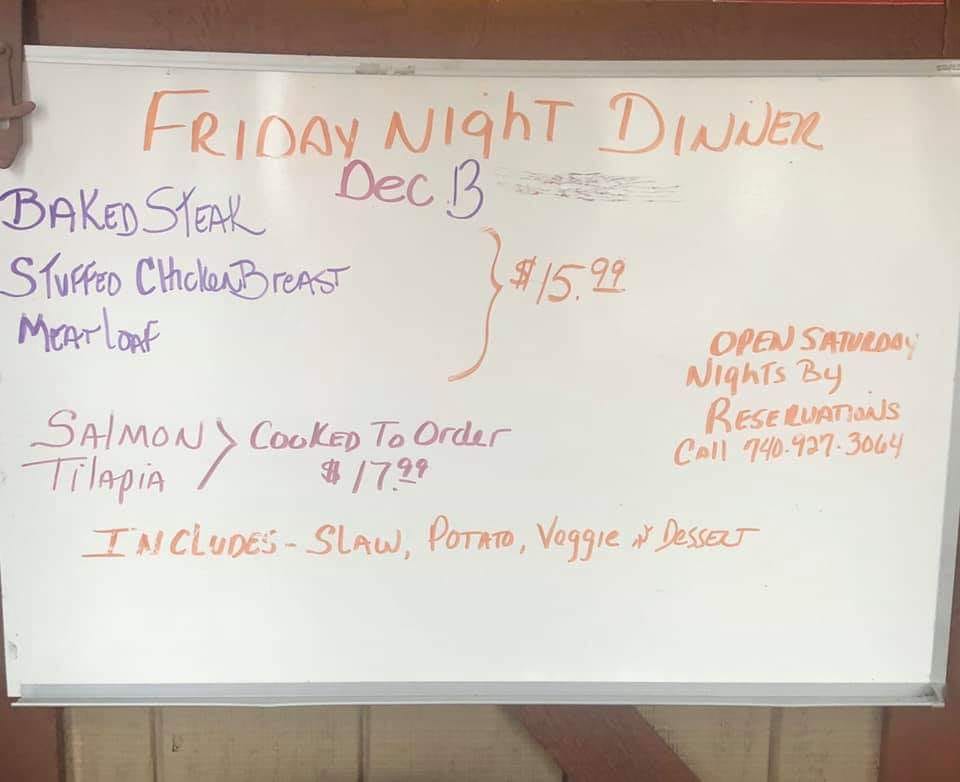 FRIDAY NIGHT DINNER
Dec 13
BAKED STEAK
STUFFED CHICKEN BREAST
MEATLOAF
$15.99
OPEN SATURDAY
NIGHTS BY
RESERVATIONS
CALL 740-927-3064
SALMON
TILAPIA
COOKED TO ORDER
$17.99
INCLUDES - SLAW, POTATO, Veggie & DESSERT